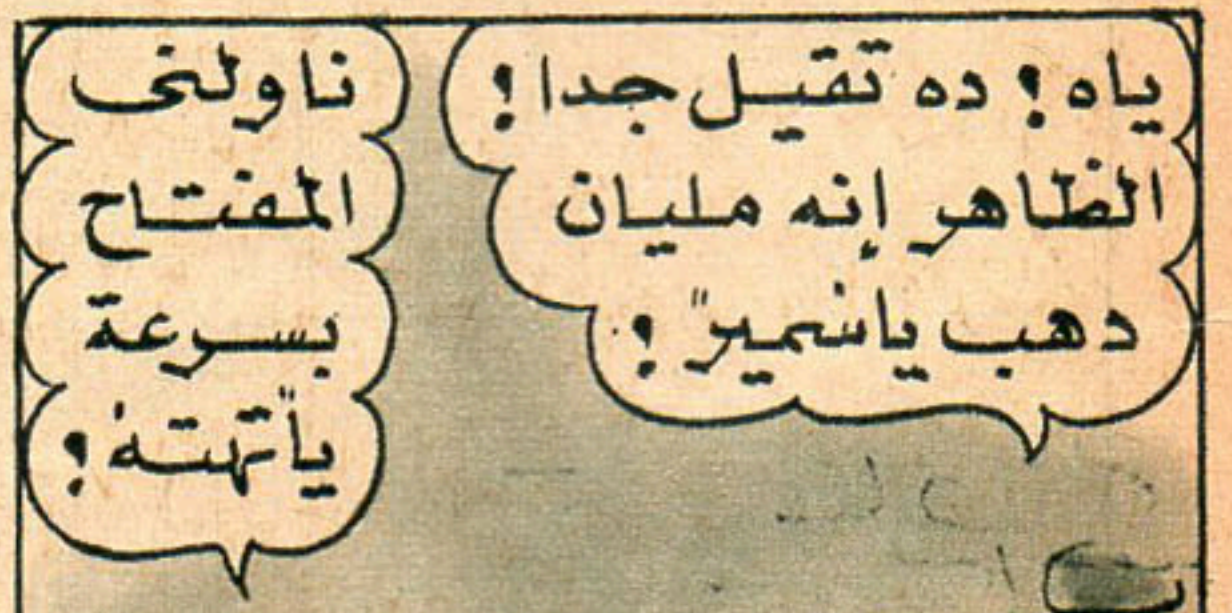 ياه! ده تقيل جدا!
الظاهر إنه مليان
دهب يا "سمير"!
ناولنى
المفتاح
بسرعة
يا "تهته"!